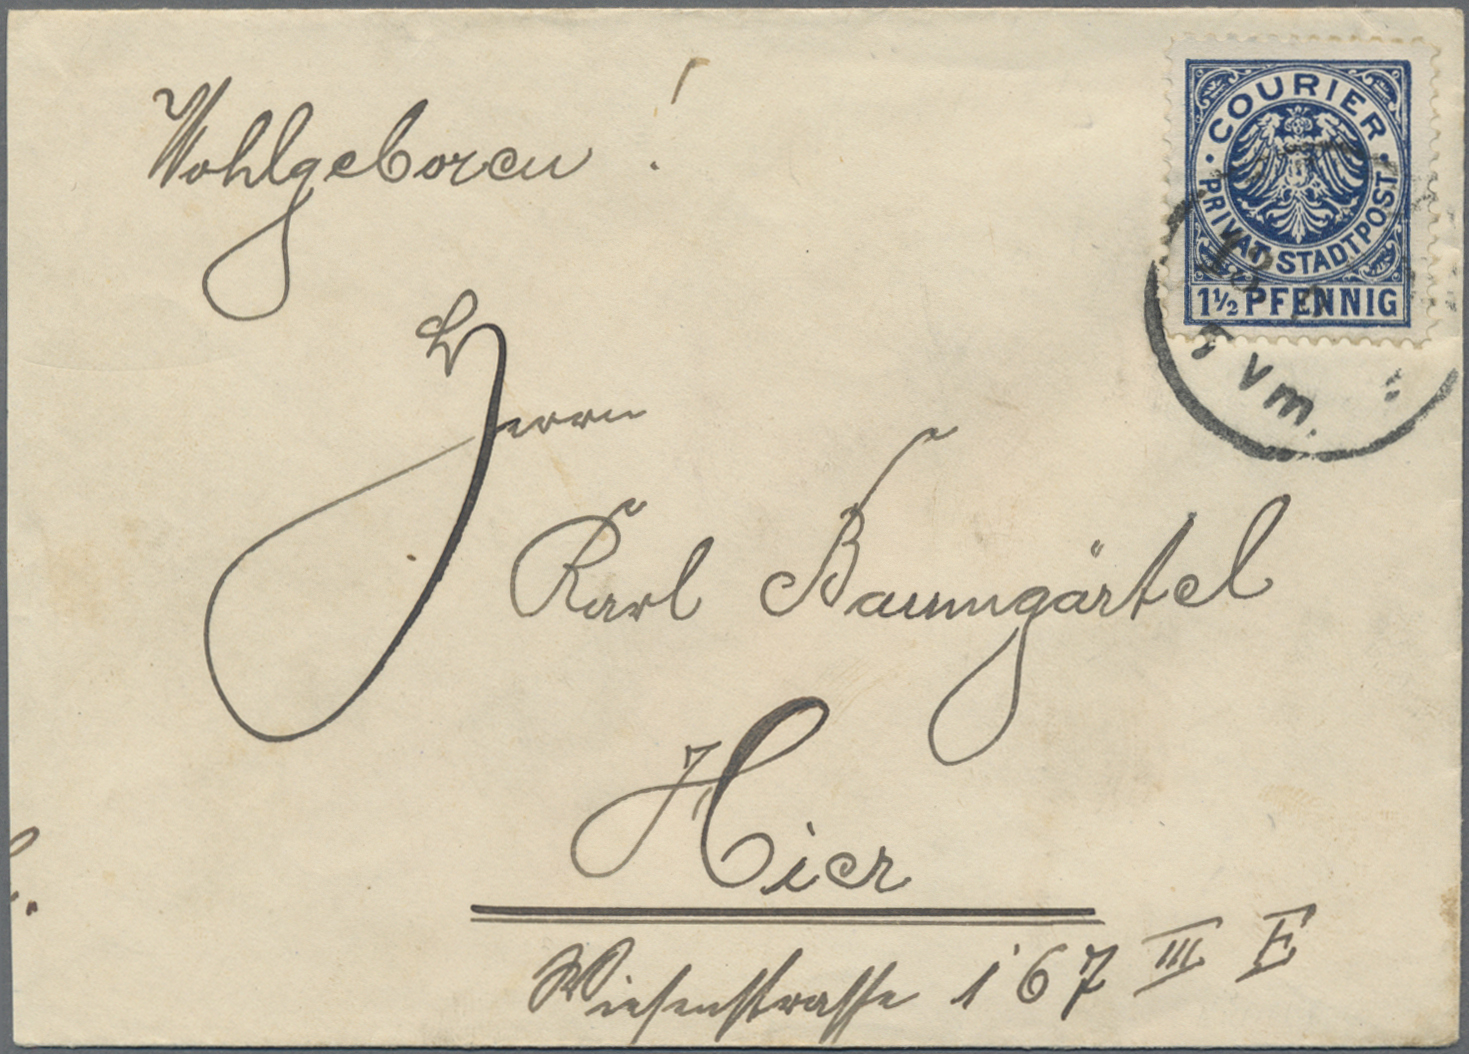 COURIER
PRIVAT STADTPOST
1½ PFENNIG
5 Vm.
Wohlgeboren !
Herrn
Karl Baumgärtel
Hier
Wiesenstrasse 167 III E